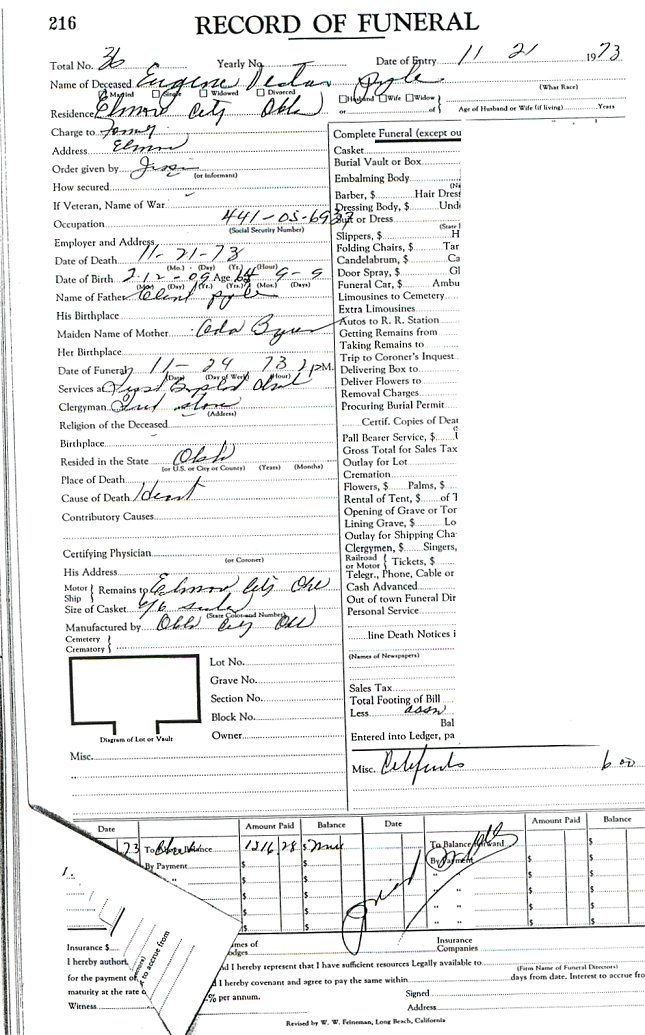 216
RECORD OF FUNERAL
Total No. 36 Yearly No. Date of Entry 11 21 1973
Name of Deceased Eugene Pyle
(What Race)
Married Single Widowed Divorced Husband Wife Widow
or of Age of Husband or Wife (if living) Years
Residence Elmore City Okla
Charge to Family
Address Elmore
Order given by
(or Informant)
How secured
If Veteran, Name of War
Occupation 441-05-6937
(Social Security Number)
Employer and Address
Date of Death 11-21-73
(Mo.) (Day) (Yr.) (Hour)
Date of Birth 2-12-09 Age 64 9-9
(Mo.) (Day) (Yr.) (Yrs.) (Mos.) (Days)
Name of Father Clint Pyle
His Birthplace
Maiden Name of Mother Ada
Her Birthplace
Date of Funeral 11-24 73 2 P.M.
(Date) (Day of Week) (Hour)
Services at First Baptist
Clergyman
(Address)
Religion of the Deceased
Birthplace
Resided in the State Okla
(or U.S. or City or County) (Years) (Months)
Place of Death
Cause of Death Heart
Contributory Causes
Certifying Physician
(or Coroner)
His Address
Motor Ship Remains to Elmore City Okl
Size of Casket 6/6
(State Color and Number)
Manufactured by Okla City Okl
Cemetery
Crematory
Lot No.
Grave No.
Section No.
Block No.
Owner
Diagram of Lot or Vault
Misc.
Complete Funeral (except ou
Casket
Burial Vault or Box
Embalming Body
Barber, $ Hair Dres
Dressing Body, $ Und
Suit or Dress
(State
Slippers, $ H
Folding Chairs, $ Tar
Candelabrum, $ Ca
Door Spray, $ Gl
Funeral Car, $ Ambu
Limousines to Cemetery
Extra Limousines
Autos to R. R. Station
Getting Remains from
Taking Remains to
Trip to Coroner's Inquest
Delivering Box to
Deliver Flowers to
Removal Charges
Procuring Burial Permit
Certif. Copies of Dea
Pall Bearer Service, $
Gross Total for Sales Tax
Outlay for Lot
Cremation
Flowers, $ Palms, $
Rental of Tent, $ of T
Opening of Grave or Tor
Lining Grave, $ Lo
Outlay for Shipping Cha
Clergymen, $ Singers,
Railroad or Motor Tickets, $
Telegr., Phone, Cable or
Cash Advanced
Out of town Funeral Dir
Personal Service
line Death Notices i
(Names of Newspapers)
Sales Tax
Total Footing of Bill
Less assn
Bal
Entered into Ledger, pa
Misc. 6 00
Date Amount Paid Balance Date Amount Paid Balance
73 To Balance 1216.28 $ To Balance Forward
By Payment $ By Payment $
" " $ " " $
$ " " $
$ " " $
Paid
Insurance $ Insurance Companies
I hereby authori
d I hereby represent that I have sufficient resources Legally available to
(Firm Name of Funeral Directors)
for the payment of d I hereby covenant and agree to pay the same within days from date. Interest to accrue fro
maturity at the rate o % per annum. Signed
Witness Address
t to accrue from
Revised by W. W. Feineman, Long Beach, California